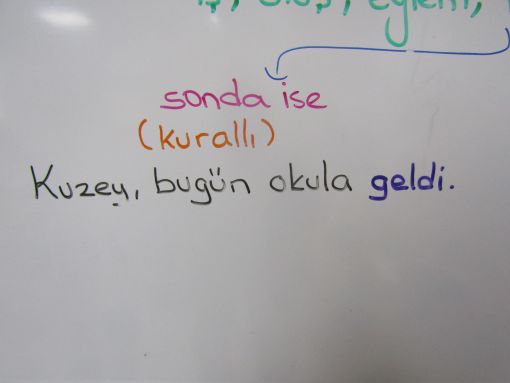 iş, oluş, eylem,
sonda ise
(kurallı)
Kuzey, bugün okula geldi.